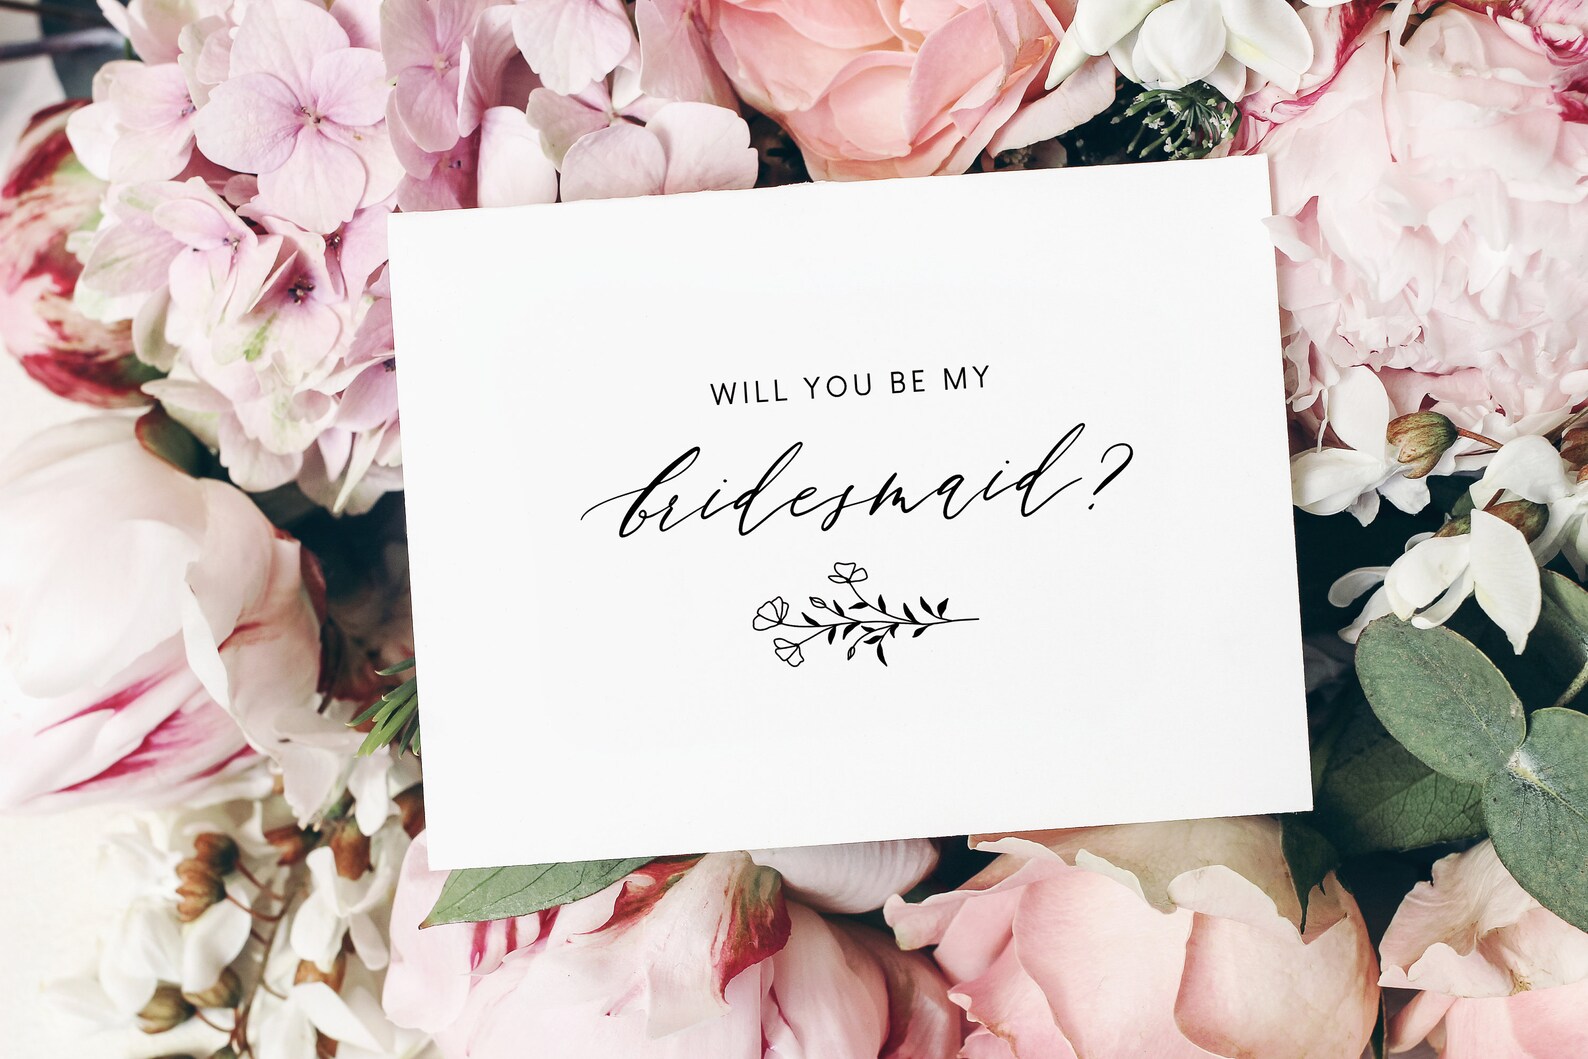 WILL YOU BE MY
bridesmaid?